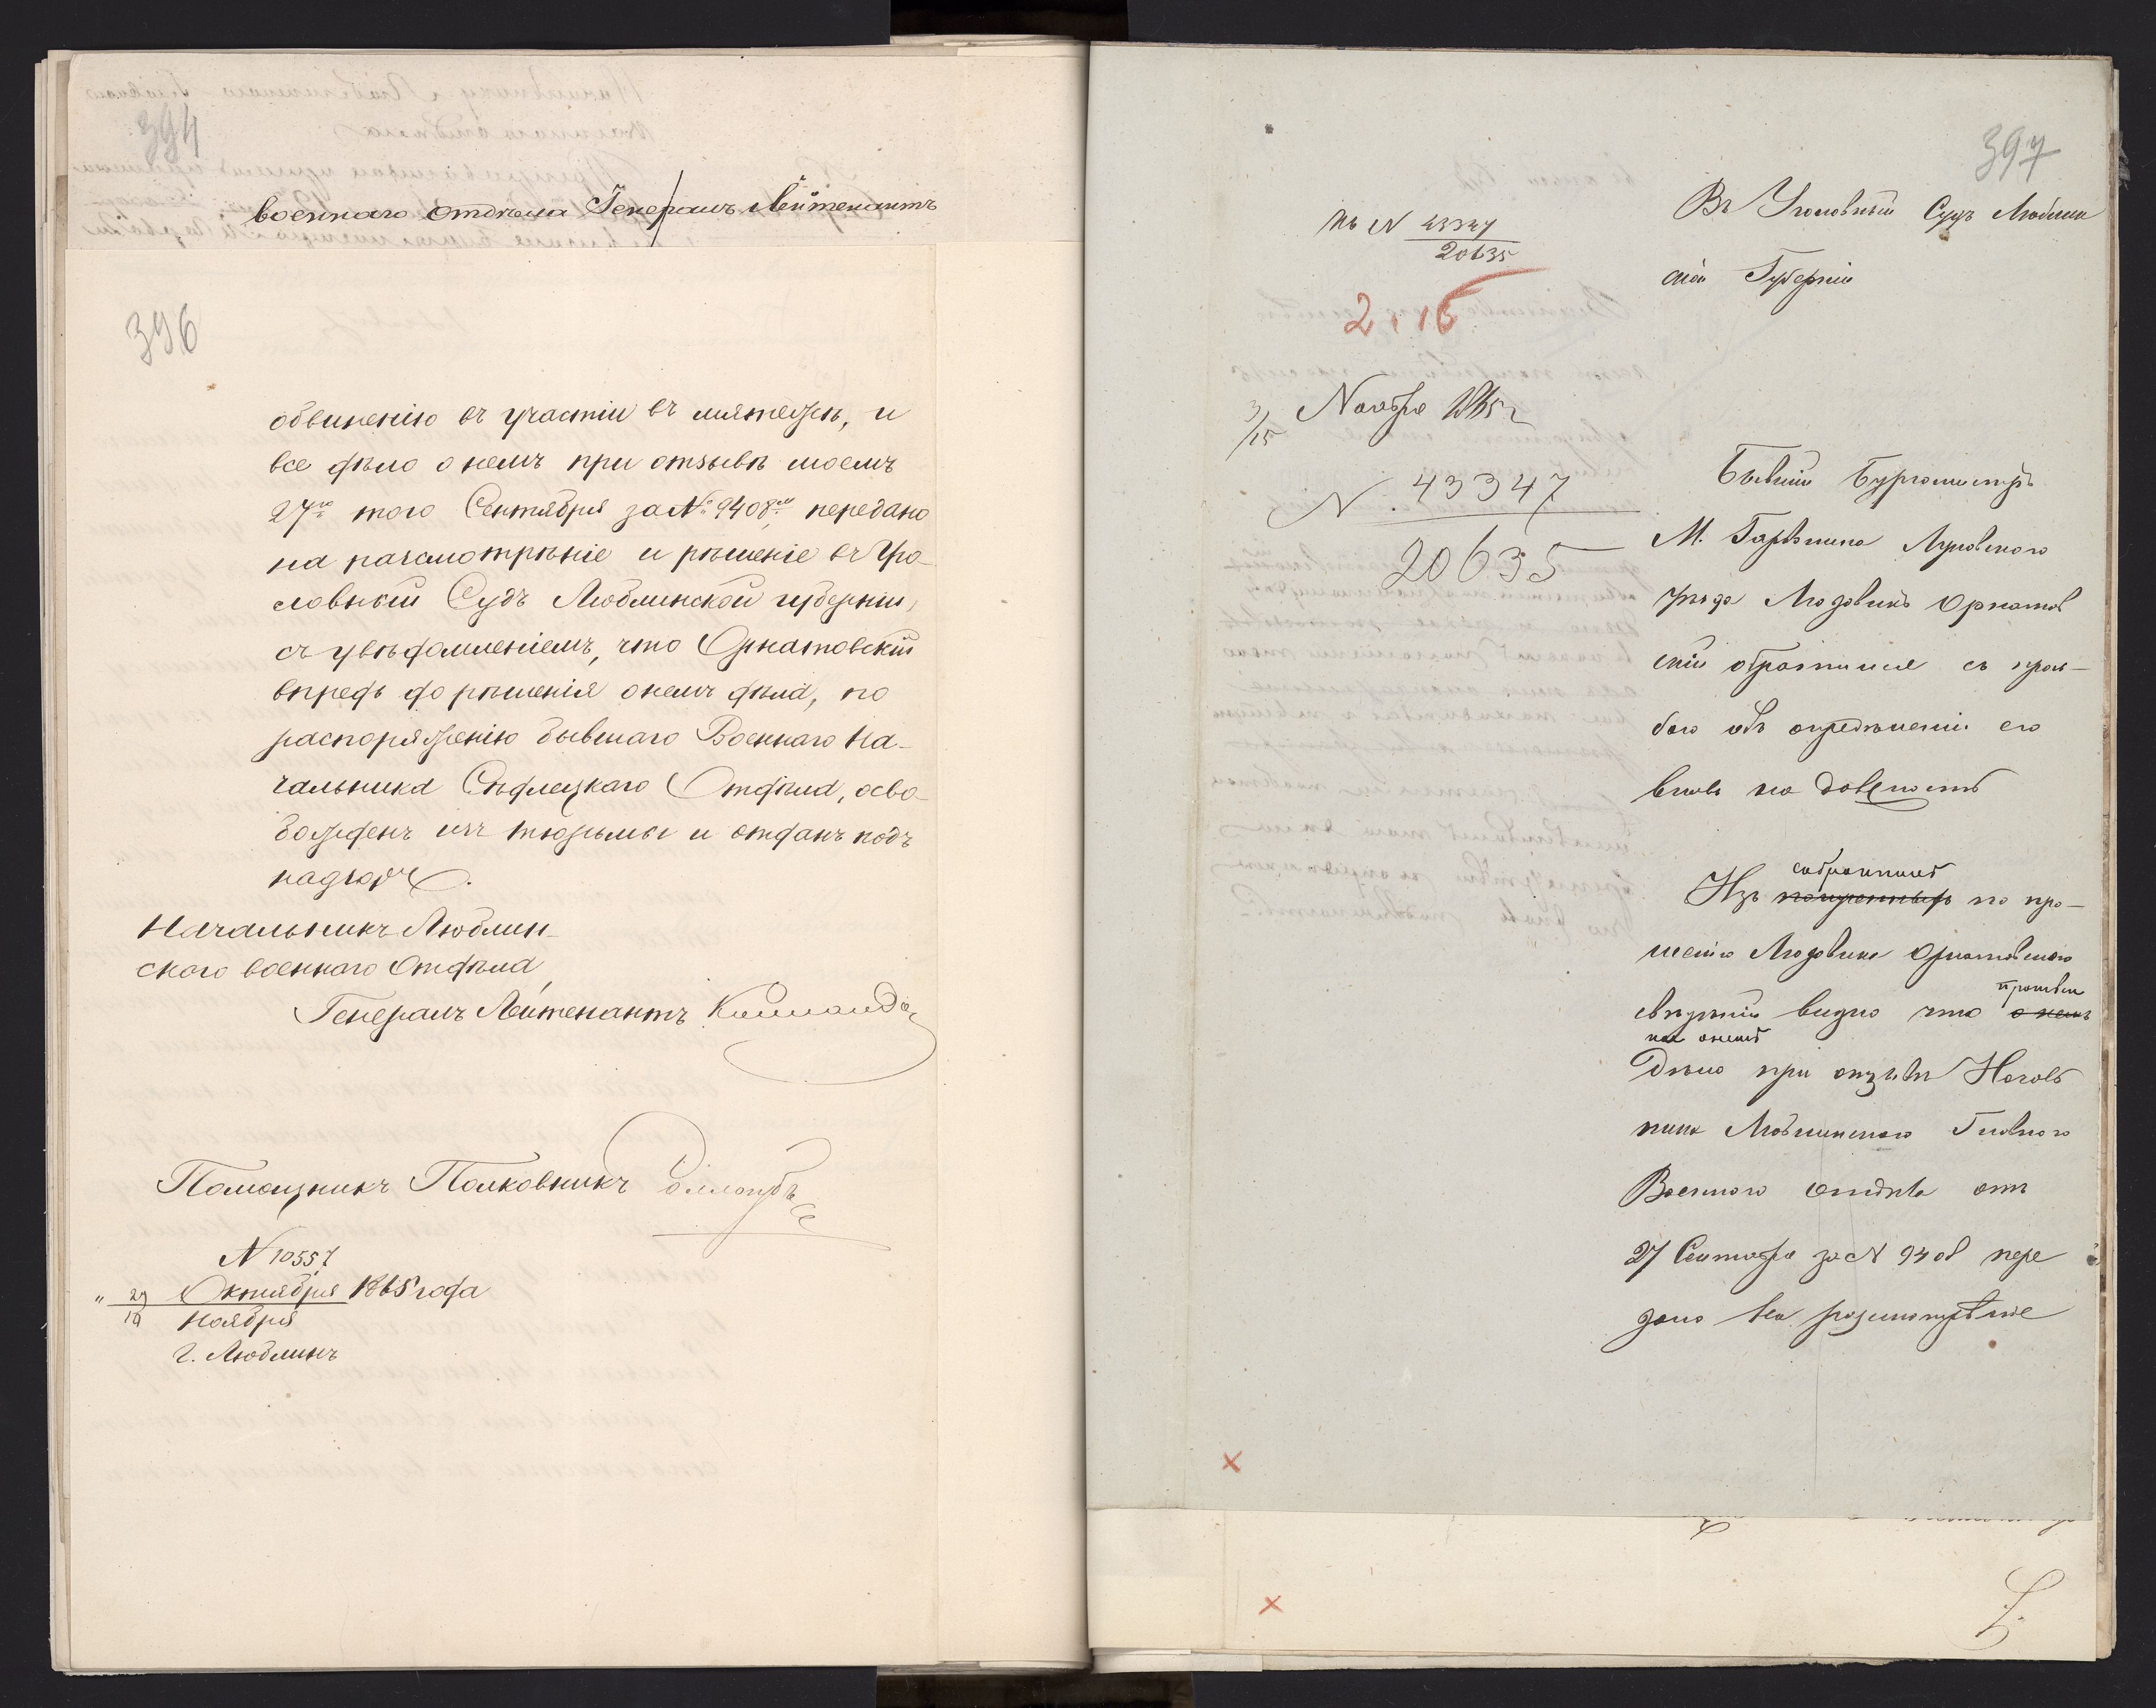 394
военнаго отдѣла Генералъ Лейтенантъ
396
обвиненію въ участіи въ мятежѣ, и
все дѣло о немъ при отзывѣ моемъ
27го того Сентября за №. 9408м, передано
на разсмотрѣніе и рѣшеніе въ Уго-
ловный Судъ Люблинской губерніи,
съ увѣдомленіемъ, что Орнатовскій
впредь до рѣшенія о немъ дѣла, по
распоряженію бывшаго Военнаго На-
чальника Сѣдлецкаго Отдѣла, осво-
божденъ изъ тюрьмы и отданъ подъ
надзоръ.
Начальникъ Люблин-
скаго военнаго Отдѣла,
Генералъ Лейтенантъ
Помощникъ Полковникъ
N 10557
" 27 Октября 1865 года
Ноября
г. Люблинъ
397
Въ Уголовный Судъ Люблин
ской Губерніи
къ N 43347
20635
2.16
3/15 Ноября 1865 г
N. 43347
20635
Бывшій Бургомистръ
М. Гарволина Луковскаго
уѣзда Людовикъ Орнатов
скій обратился съ прось-
бою объ опредѣленіи его
вновь на должность
собранныхъ
Изъ по про-
шенію Людовика Орнатовскаго
свѣдѣній видно что о немъ
Дѣло при отзывѣ Началь
ника Люблинскаго Главнаго
Военнаго отдѣла отъ
27 Сентября за N 9408 пере
дано на разсмотрѣніе